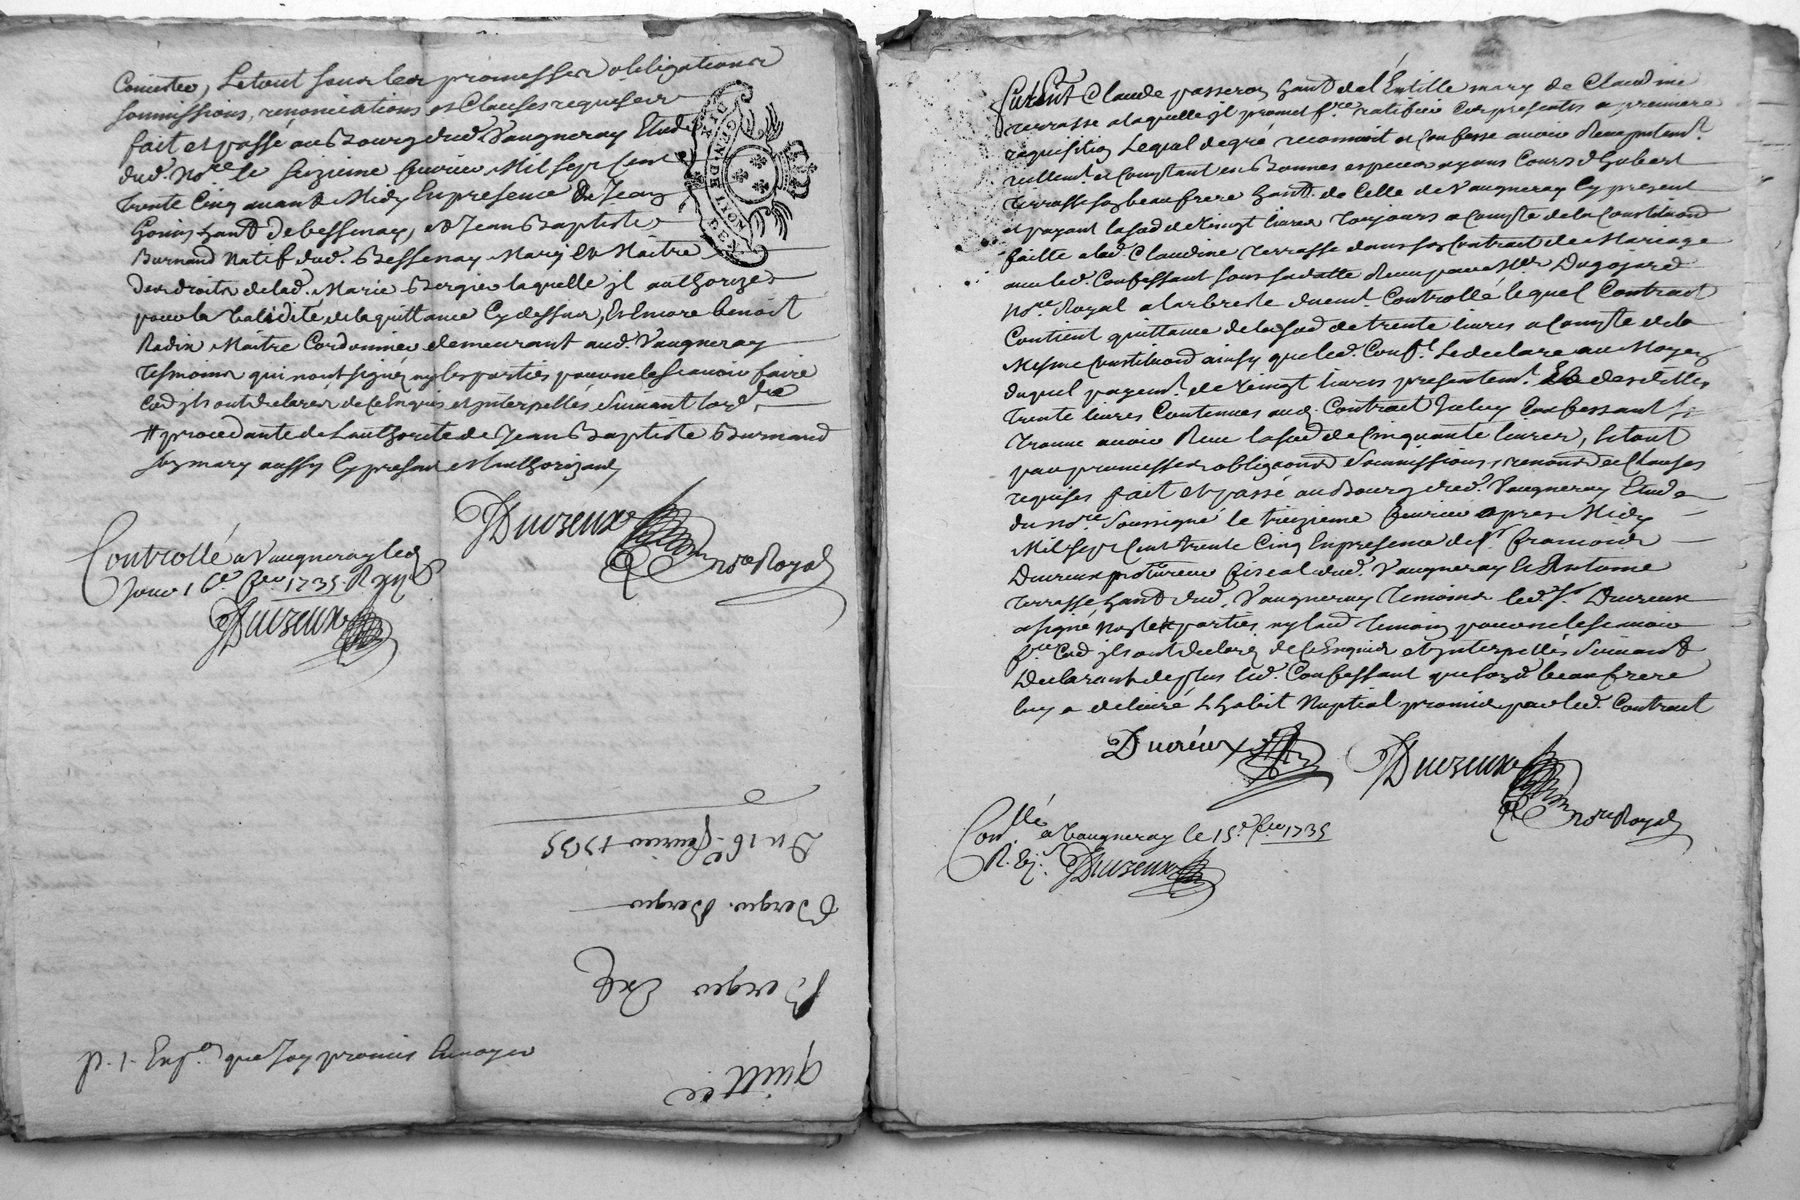 Comistes, Le tout sous les promesses obligations
soumissions, renonciations et Clauses requises
fait et passé au Bourg dud. Vaugneray Etude
dud. No.re le seizieme fevrier Mil sept Cent
trente Cinq avant Midy En presence de Jean
habt. de bessenay, et Jean Baptiste
Burnand Natif dud. Bessenay Mary et Maitre
des droits de lad. Marie Bergier laquelle jl authorize
pour la Validité de la quittance Cy dessus, et Encore benoist
Radix Maitre Cordonnier demeurant aud. Vaugneray
tesmoins qui nont signé ny les parties pour ne le scavoir faire
Co'd jls ont declarés de Ce Enquis et jnterpellés suivant lord.ce
# procedante de Lauthorité de Jean Baptiste Burnand
son mary aussy Cy present et Lauthorizant
Ducreux
no.re Royal
Controllé a Vaugneray led.
Jour 16.e fev. 1735. R
Ducreux
Du 16.e fevrier 1735
Bergier Bergier
Bergier Exp
quitt.ce
p. 1. Exp.on que Jay promis Envoyer
DIX DEN. GEN. DE LYON
Fut pnt Claude passeron habt. de lEntille mary de Claudine
terrasse a laquelle jl promet f.re ratifier Ces presentes a premiere
requisition Lequel de gré reconnoit et Confesse avoir Receu putem.t
reellem.t et Comptant en Bonnes especes ayans Cours d'hubert
terrasse son beaufrere habt. de Celle de Vaugneray Cy present
et payant la som de Vingt livres toujours a Compte de la Constitu'on
faitte a lad. Claudine terrasse dans son Contrat de Mariage
avec led. Confessant sous sa datte Receu par M.re Dugojard
No.re Royal a larbresle duem.t Controllé lequel Contract
Contient quittance de la som de trente livres a Compte de la
Mesme Constitu'on ainsy que led. Conf.t Le declare au Moyen
duquel payem.t de Vingt livres presentem.t & desdittes
trente livres Contenues aud. Contract Jceluy Confessant se
trouve avoir Receu la som de Cinquante livres, Le tout
par promesses obliga'ons soumissions, renon'ons et Clauses
requises fait et passé au Bourg dud. Vaugneray Etude
du no.re soussigné le treizieme fevrier apres Midy
Mil sept Cent trente Cinq En presence de S.r francois
Ducreux procureur fiscal dud. Vaugneray & Antoine
terrasse habt. dud. Vaugneray temoins led. S.r Ducreux
a signé Non les parties ny laud temoin pour ne le scavoir
f.re Co'd jls ont declaré de Ce Enquis et jnterpellés suivant
Declarant de plus led. Confessant que sond. beaufrere
luy a delivré Lhabit Nuptial promis par led. Contract
Ducreux
Ducreux
no.re Royal
Con.llé a Vaugneray le 15.e fev 1735
R.
Ducreux